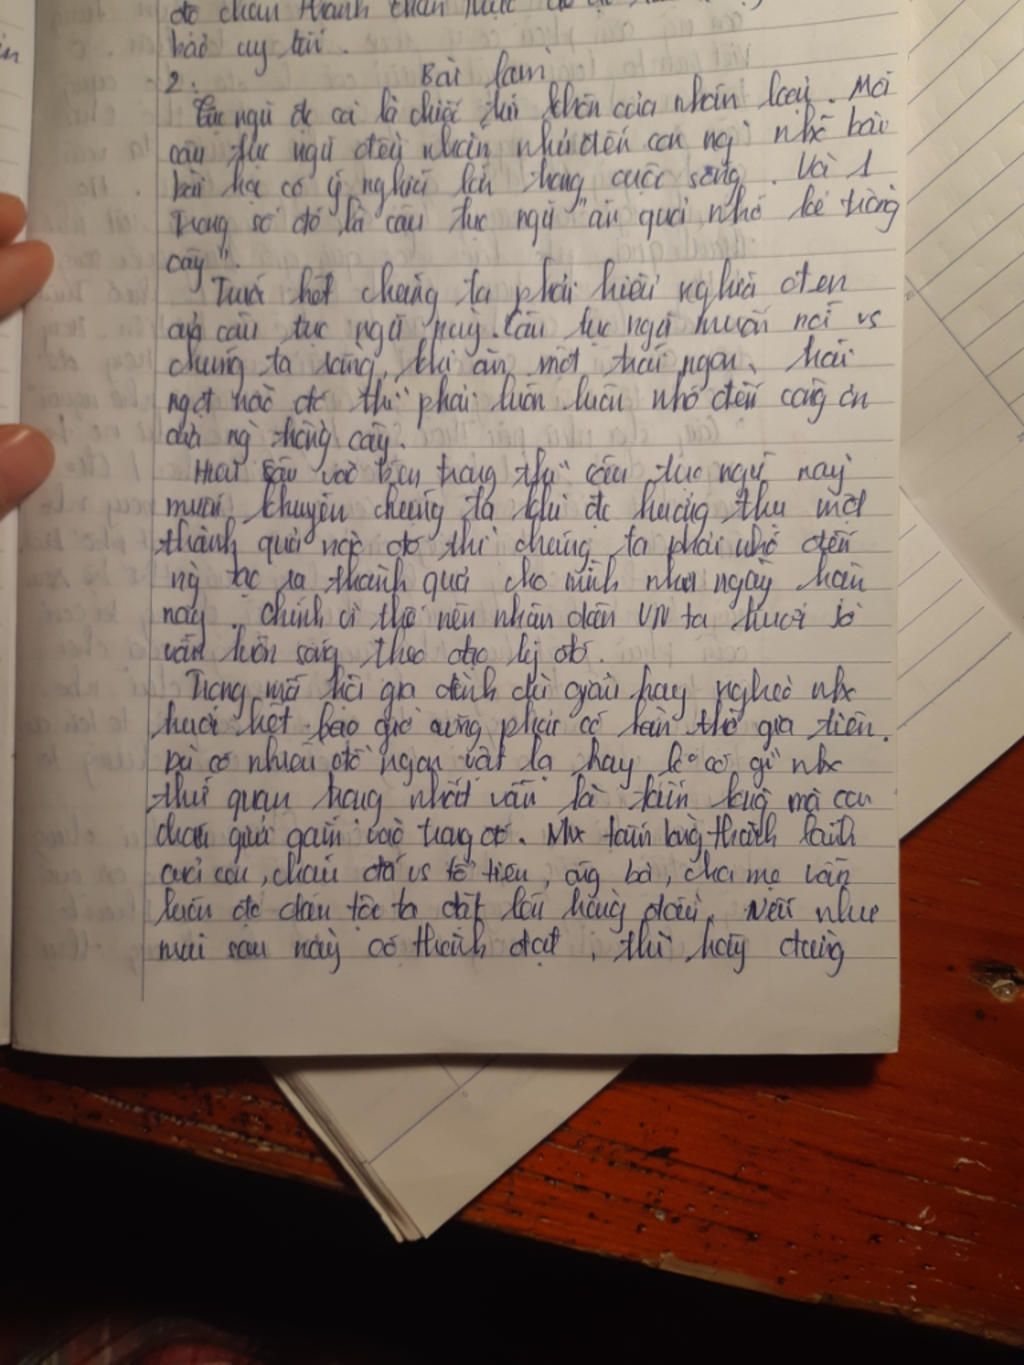 bảo uy tín.
2. Bài làm
Tục ngữ đc coi là chiếc túi khôn của nhân loại. Mỗi
câu tục ngữ đều nhắn nhủ đến con ng` những bài
bài học có ý nghĩa lớn trong cuộc sống. Và 1
trong số đó là câu tục ngữ "ăn quả nhớ kẻ trồng
cây".
Trước hết chúng ta phải hiểu nghĩa đen
của câu tục ngữ này. Câu tục ngữ muốn nói vs
chúng ta rằng, khi ăn một trái ngon, trái
ngọt nào đó thì phải luôn luôn nhớ đến công ơn
của ng` trồng cây.
sâu vào bên trong thì câu tục ngữ này
muốn khuyên chúng ta khi đc hưởng thụ một
thành quả nào đó thì chúng ta phải nhớ đến
ng` tạo ra thành quả cho mình như ngày hôm
nay. Chính vì thế nên nhân dân VN ta
vẫn luôn sống theo đạo lý đó.
Trong mỗi hộ gia đình dù giàu hay nghèo
hết bao giờ cũng phải có bàn thờ gia tiên.
Dù có nhiều đồ ngon vật lạ hay k° có gì
thứ quan trọng nhất vẫn là tấm lòng mà con
cháu gửi gắm vào trong đó. tấm lòng thành kính
của con, cháu đó vs tổ tiên, ông bà, cha mẹ vẫn
luôn đc dân tộc ta đặt lên hàng đầu. Nếu như
mai sau này có thành đạt, thì hãy đừng